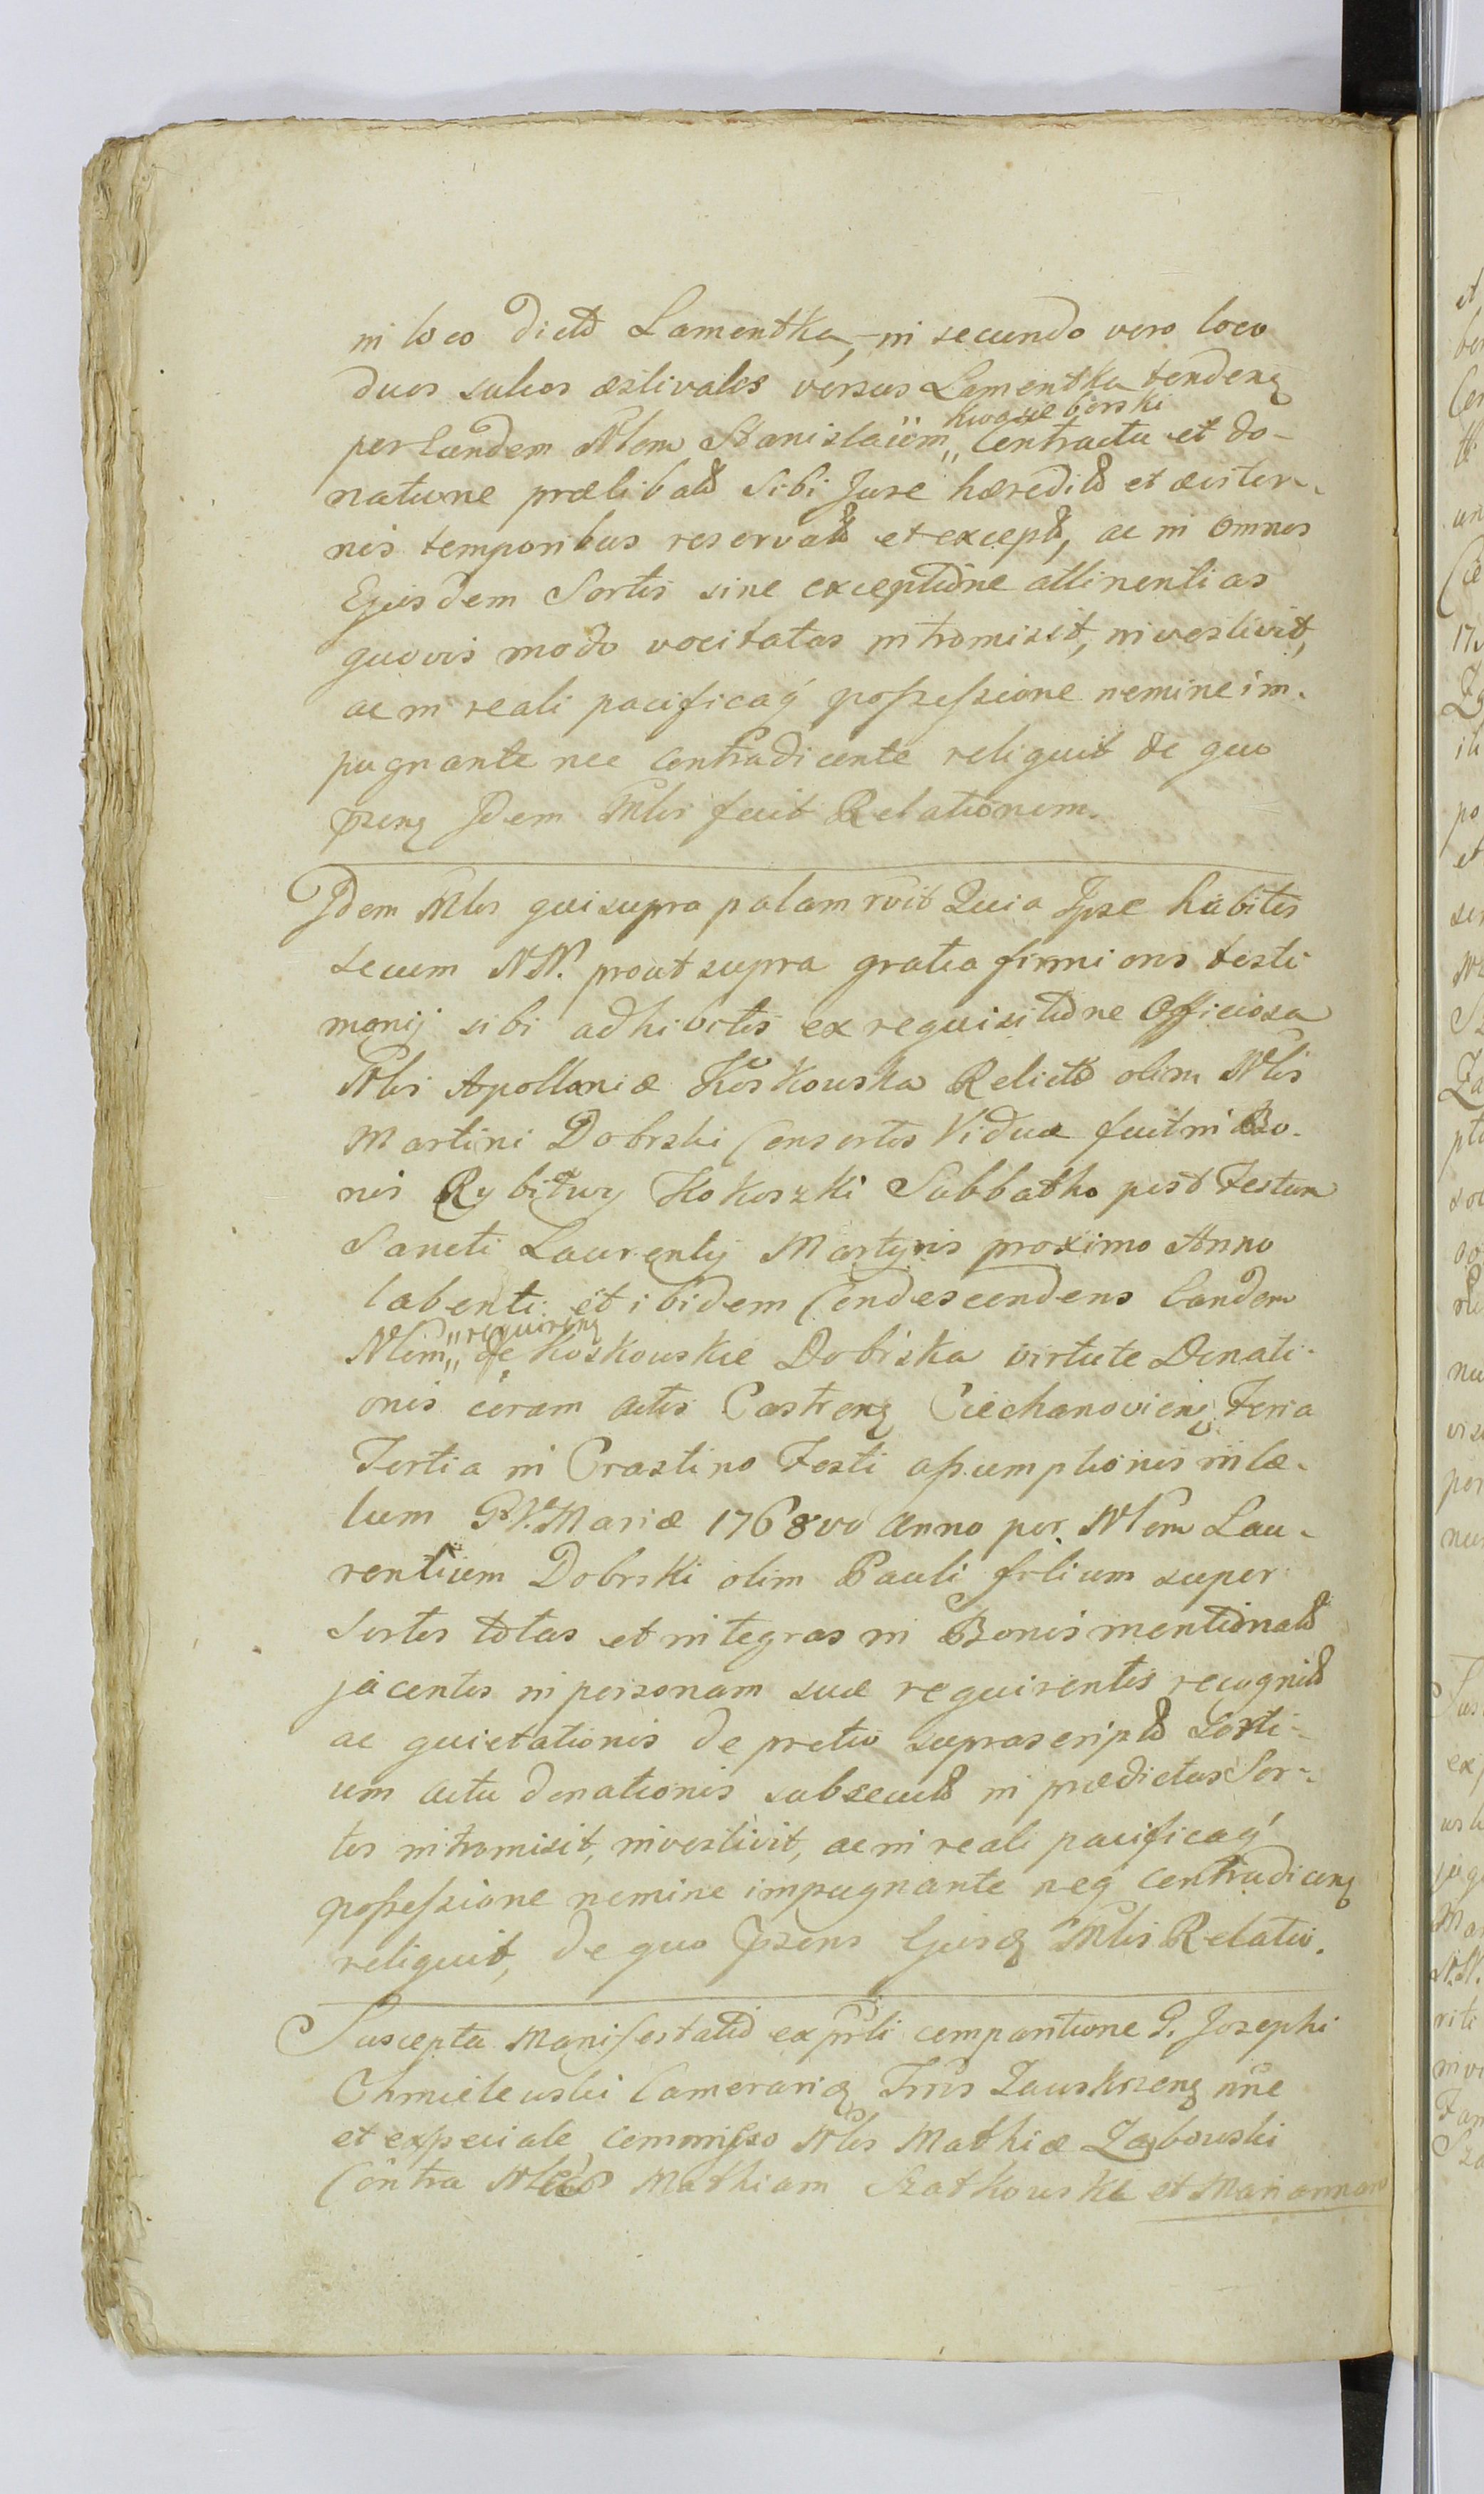 in loco dicto Lamentka, in secundo vero loco
duos sulcos æstivales versus Lamentka tendenꝫ
Kwasieborski
per Eundem Nlem Stanislaüm,, Contractu et do-
natione prælibatt Sibi Jure hæreditt et æviter-
nis temporibus reservatt et exceptt, ac in omnes
Ejusdem Sortis sine exceptione attinentias
quovis modo vocitatas intromisit, investivit,
ac in reali pacificaq possessione nemine im-
pugnante nec Contradicente reliquit de quo
prænꝫ Idem Mlis fecit Relationem.
Idem Mlis qui supra palam rvit Quia Ipse habitis
secum NN. prout supra gratia firmioris testi
monij sibi adhibitis ex requisitione Officiosa
Nlis Apolloniæ Koskowska Relictæ olim Nlis
Martini Dobrski Consortis Viduæ fuit in Bo-
nis Rybitwy Kokoszki Sabbatho post Festum
Sancti Laurentij Martyris proximo Anno
labenti et ibidem Condescendens Eandem
requirenꝫ
Nlem,, de Koskowskie Dobrska virtute Donati-
onis coram Actis Castrenꝫ Ciechanovienꝫ Feria
Tertia in Crastino Festi assumptionis in Cæ-
lum B.V. Mariæ 1768vo Anno per Nlem Lau-
rentium Dobrski olim Pauli filium super
Sortes totas et integras in Bonis mentionatt
jacentes in personam suæ requirentis recognitt
ac quietationis de pretio suprascriptt Sorti-
um actu donationis subsecutt in prædictas Sor-
tes intromisit, investivit, ac in reali pacificaq
possessione nemine impugnante neq Contradicenꝫ
reliquit, de quo Præsens Ejusdꝫ Mlis Relatio.
Suscepta Manifestatio ex prli comparitione G. Josephi
Chmielewski Camerarij Trris Zawskrzenꝫ nne
et ex speciale Commisso Nlis Mathiæ Zabowski
Contra Nles Mathiam Szatkowski et Mariannam